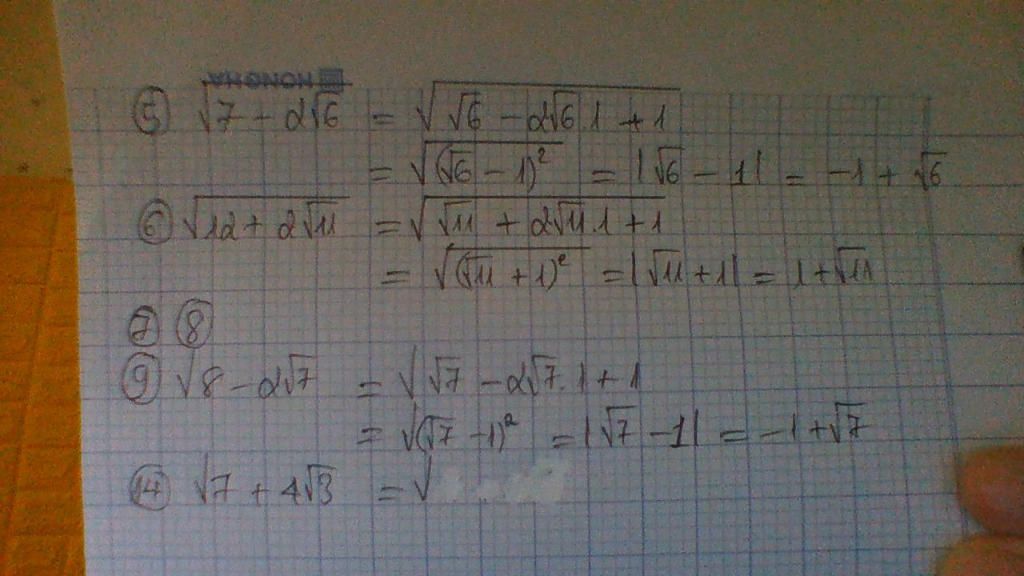 HONGHA
⑤ √(7 - 2√6) = √(√6 - 2√6.1 + 1)
= √((√6 - 1)²) = |√6 - 1| = -1 + √6
⑥ √(12 + 2√11) = √(√11 + 2√11.1 + 1)
= √((√11 + 1)²) = |√11 + 1| = 1 + √11
⑦ ⑧
⑨ √8 - 2√7 = √√7 - 2√7.1 + 1
= √(√7 - 1)² = |√7 - 1| = -1 + √7
⑭ √7 + 4√3 = √